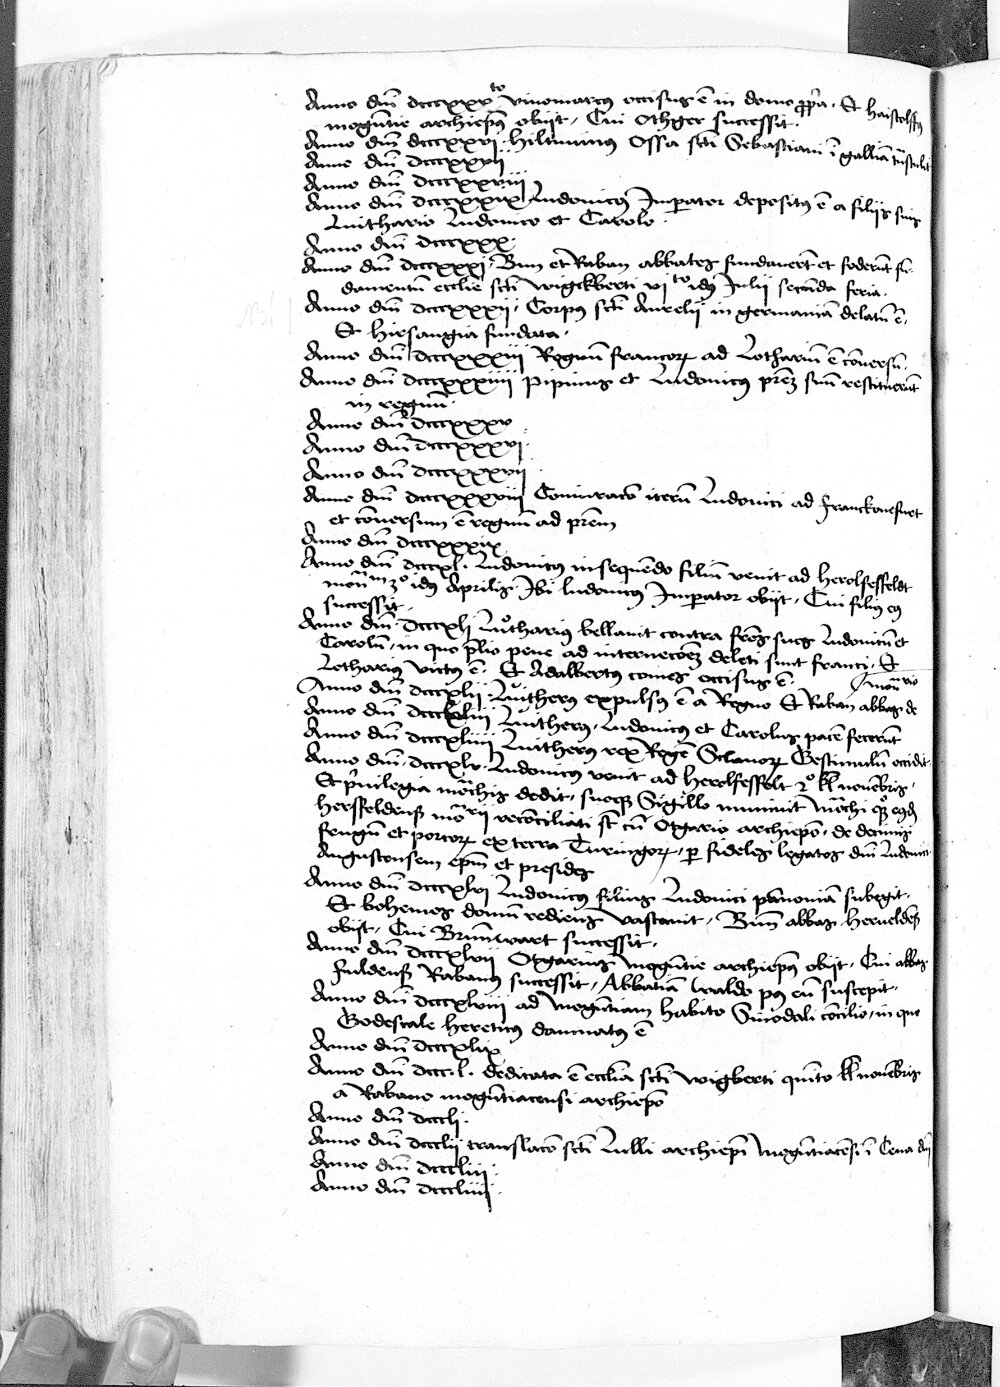 Anno dni̅ dcccxxvto Vinomarcus occisus e̅ in domo pp̃a. Et Haistolffus
mogu̅tie archiep̃us obijt, Cui Othger successit.
Anno dni̅ dcccxxvi. Hiltiuinus Ossa sc̃ti Sebastiani i̅ gallia̅ tu̅stulit
Anno dni̅ dcccxxvii
Anno dni̅ dcccxxviii
Anno dni̅ dcccxxix Ludouicus Imperator depositus e̅ a filijs suis
Luithario Ludouico et Carolo.
Anno dni̅ dcccxxx.
Anno dni̅ dcccxxxi. Bun et Raban abbates fundauert̅ et foderunt fu̅
damentu̅ ecclie̅ sc̃ti wigkberti vi to idus Julii secu̅da feria.
Anno dni̅ dcccxxxii. Corpus sc̃ti Aurelii in germania̅ delatu̅ e̅.
Et hirsaugia fundata.
Anno dni̅ dcccxxxiii Regnu̅ francorꝝ ad Lothariu̅ e̅ co̅uersu̅.
Anno dni̅ dcccxxxiiii Pipinus et Ludouicus pr̃em suu̅ restituerunt
in regnu̅.
Anno dni̅ dcccxxxv
Anno dni̅ dcccxxxvi.
Anno dni̅ dcccxxxvii
Anno dni̅ dcccxxxviii Coniurat̃o iteru̅ Ludouici ad Franckonefurt
et co̅uersum e̅ regnu̅ ad pr̃em
Anno dni̅ dcccxxxix
Anno dni̅ dcccxl. Ludouicus insequendo filiu̅ venit ad Herolfesfeldt
idus Aprilis. Ibi ludouicus Imperator obijt, Cui filius eꝰ
successit.
Anno dni̅ dcccxli Lutharius bellauit contra fr̃es suos Ludouicu̅ et
Carolu̅, in quo p̃lio pene ad internecoe̅m deleti sunt franci, Et
Lotharius victus e̅. Et Adalbertus comes occisus e̅.
Anno dni̅ dcccxlii. Luitherus expulsus e̅ a Regno Et Raban abbas de
Anno dni̅ dcccxliii Luitherus, Ludouicus et Carolus pace̅ fecerunt
Anno dni̅ dcccxliiii Luitherus rex Rege̅ Sclauorꝝ Gestimulu̅ occidit
Anno dni̅ dcccxlv. Ludouicus venit ad Herolfesfelt 2° kl̃ noue̅bris.
Et p̃uilegia mo̅chis dedit, suoqꝫ Sigillo muniuit
reconciliati st̅ cu̅ Otgario archiep̃o, de decimis
frugu̅ et porcorꝝ ex terra Turingorꝝ, p̱ fideles legatos dni̅ Ludouici
Augustensem ep̃m et presides
Anno dni̅ dcccxlvi Ludouicus filius Ludouici pa̅nonia̅ subegit.
Et bohemos domu̅ rediens vastauit. Bun̅ abbas
obijt, Cui Brunwart successit.
Anno dni̅ dcccxlvii Otgarius mogu̅tie archiep̃us obijt, Cui abbas
fuldens̃ Rabanus successit, Abbatia̅ waldo pꝰ eu̅ suscepit.
Anno dni̅ dcccxlviii ad mogu̅tiam habito Sinodali co̅cilio, in quo
Godescalc hereticus damnatus e̅
Anno dni̅ dcccxlix
Anno dni̅ dccc.l. dedicata e̅ eccl̃ia sc̃ti wigberti qui̅to kl̃ noue̅bris
a Rabano mogu̅tiacensi archiep̃o
Anno dni̅ dcccli.
Anno dni̅ dccclii translat̃o sc̃ti Lulli archiep̃i mogu̅tiace̅s̃ i̅ Cena dni̅
Anno dni̅ dcccliii.
Anno dni̅ dcccliiii.